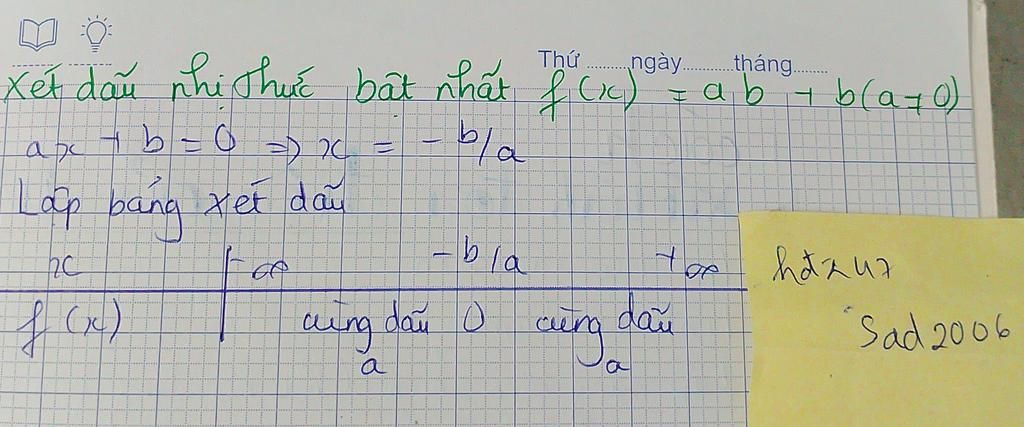 Thứ ..........ngày...........tháng........
Xét dấu nhị thức bât nhất f(x) = ab + b(a≠0)
ax + b = 0 => x = -b/a
Lập bảng xét dấu
x -∞ -b/a +∞
f(x) cùng dấu 0 cùng dấu
a a
Sad2006